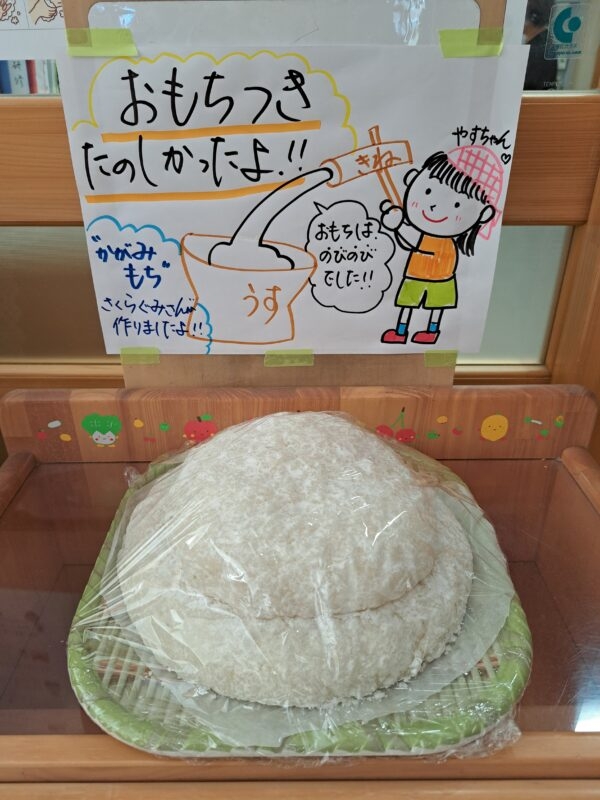 おもちつき
たのしかったよ!!
きね
やすちゃん♡
おもちは
のびのび
でした!!
"かがみ
もち"
さくらぐみさんが
作りましたよ!!
うす